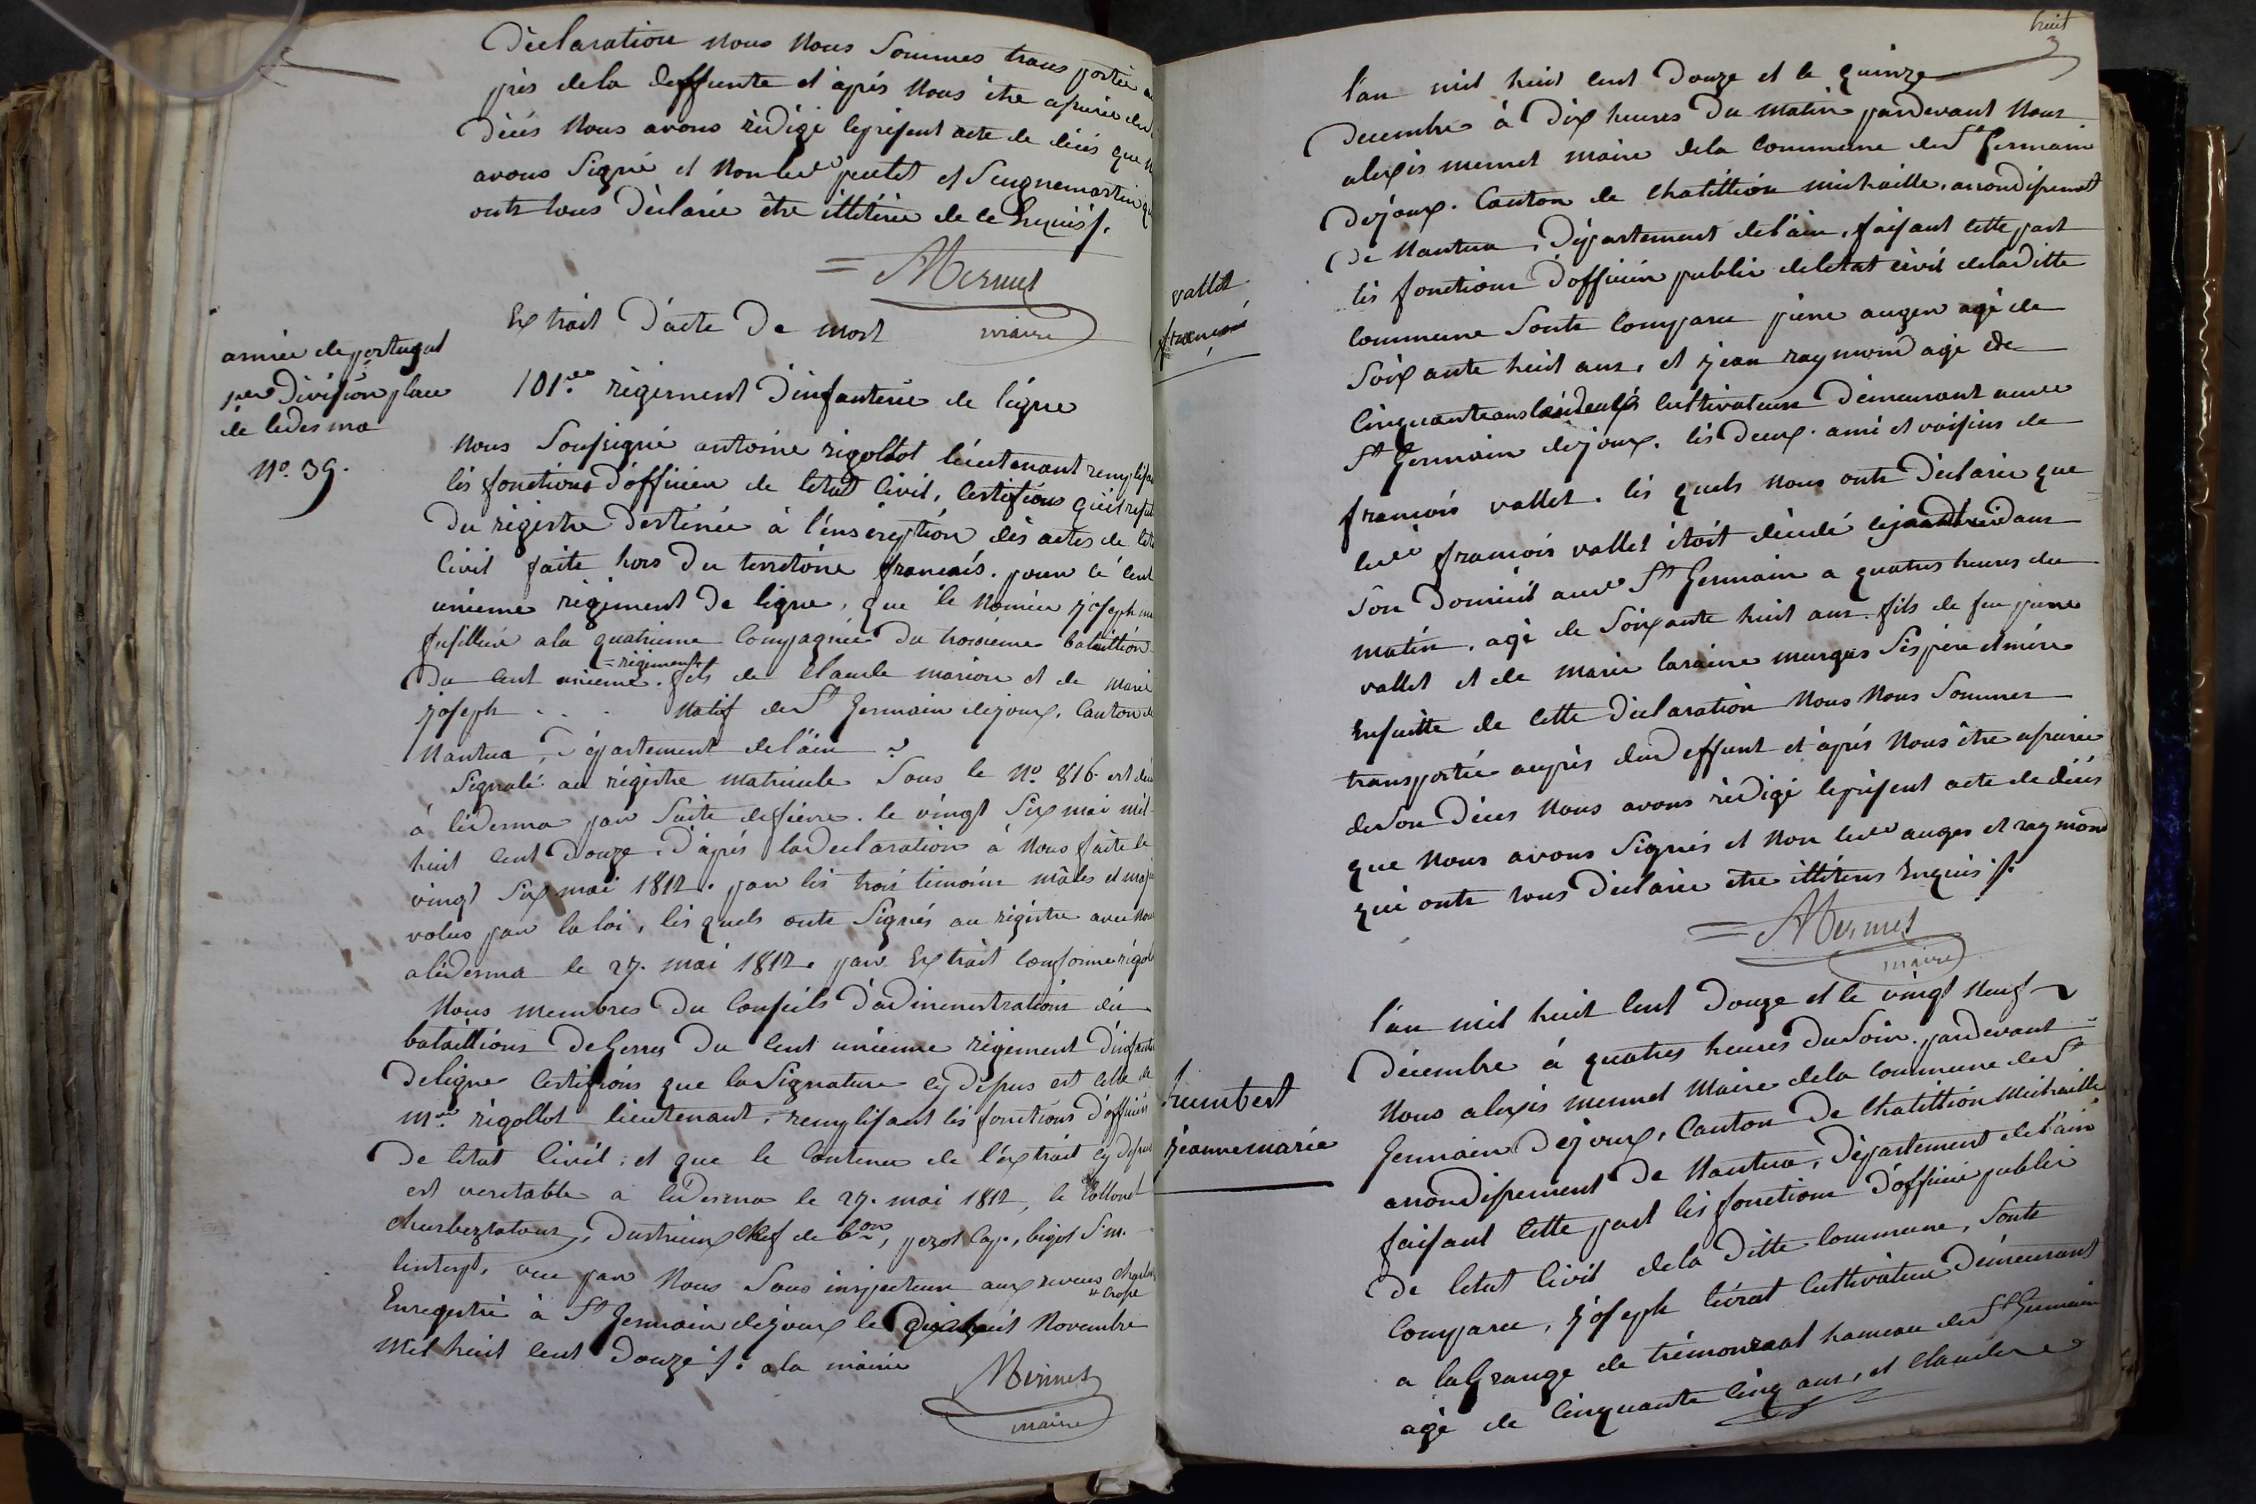 Déclaration nous nous sommes transportée
près de la deffunte et après nous être assurée du
décès nous avons rédigé le présent acte de décès que
avons signé et non led peulet et Seugnemartin
onts tous déclarée être illitérée de ce Enquis ./.
= AMermet
maire
Extrait D'acte De mort
armée de portugal
1er Division place
de ledesma
No. 39.
101.e régiment d'infanterie de ligne
nous soussigné antoine rigollot lieutenant remplissant
les fonctions d'officier de letat civil, certifions qu'il resulte
Du régistre Destinée à l'inscription des actes de leta
Civil faite hors du territoire français. pour le cent
unieme régiment De ligne, que le nomée joseph
fusillier a la quatrieme Compagnie du troisieme bataillion
= regiment
Du cent unieme. fils de Claude marion et de marie
joseph . . . natif de St Germain dejoux, Canton de
Nantua, Département de l'ain
Signalé au régistre matricule Sous le No. 816 est
à lédesma par suite de fièvre. le vingt six mai mil
huit cent Douze. D'après la Declaration à nous faite le
vingt six mai 1812. par les trois témoins mâles et maj
volus par la loi, les quels onts signés au régistre avec nous
a lédesma le 27. mai 1812. par Extrait conforme rigol
nous membres Du Conseils D'administrations des
bataillions De Guerre Du Cent unieme régiment D'infante
De ligne certifions que la signature cy dessus est celle de
Mr. rigollot lieutenant, remplissant les fonctions d'officier
De letat civil; et que le contenu de l'extrait cy dessus
est veritable a lédesma le 27. mai 1812, le Collonel
Dustrieux Chef de bon, pezot Cap., bigot Sm.
vue par nous Sous inspecteur aux revues Charles
Enregistré à St Germain dejoux le Dix huit Novembre
mil huit cent Douze ./. a la mairie
Mermet
maire
huit
vallet
françois
l'an mil huit cent Douze et le quinze
Decembre à Dix heures Du matin pardevant nous
alexis mermet maire dela Commune de St Germain
Dejoux. Canton de Chatillion michaille, arrondissement
De Nantua, Département de l'ain, faisant cette part
les fonctions D'officier public de letat civil de la Ditte
commune sonts comparu pierre auger agé de
soixante huit ans, et jean raymond agé de
cinquante ans cultivateurs Demeurant aud
St Germain dejoux. les Deux ami et voisins de
françois vallet. les quels nous onts Déclarée que
led françois vallet étoit décédé dans
son Domicil aud St Germain a quatres heures du
matin, agé de soixante huit ans. fils de feu pierre
vallet et de marie laraine murgas ses père et mère
Ensuitte de cette Déclaration nous nous sommes
transportée auprès dud deffunt et après nous être assurée
de son Décès nous avons rédigé le présent acte de décès
que nous avons signés et non led auger et raymond
qui onts tous Déclarée être illitérés Enquis ./.
= AMermet
maire
humbert
jeanne marie
l'an mil huit cent Douze et le vingt neuf
Décembre à quatres heures Du soir. pardevant
nous alexis mermet Maire dela Commune de St
Germain Dejoux, Canton De Chatillion Michaille
arrondissement De Nantua, Département de l'ain
faisant cette part les fonctions D'officier public
De letat civil dela Ditte Commune, sonts
comparu, joseph livrat cultivateur Demeurant
a la Grange de trémonzaal hameau de St Germain
agé de cinquante cinq ans, et Claude